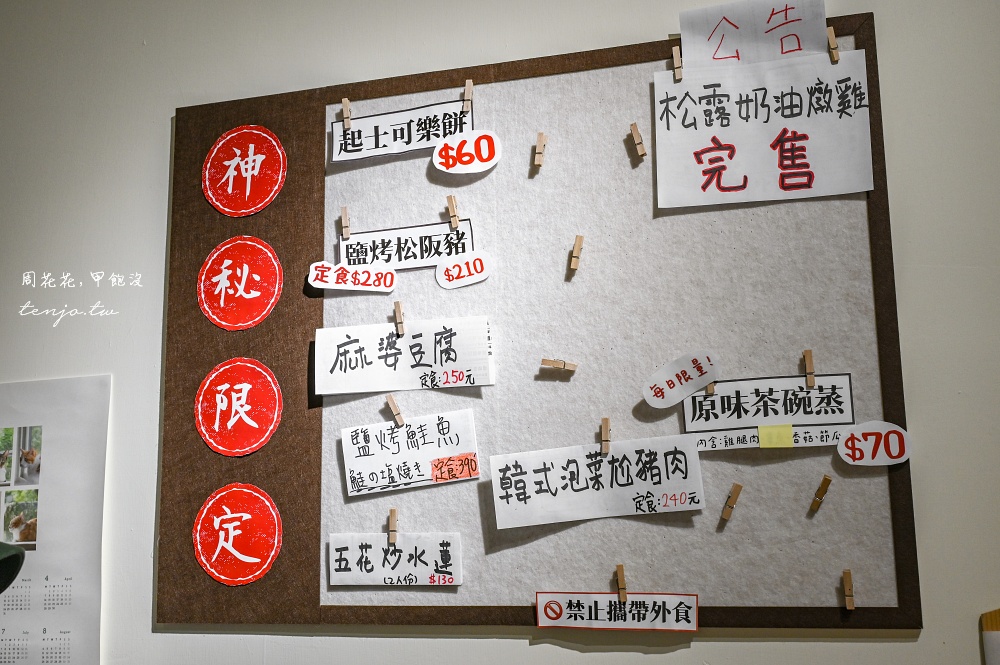 公告
松露奶油燉雞
完售
神
秘
限
定
起士可樂餅
$60
鹽烤松阪豬
定食$280
$210
麻婆豆腐
定食:250元
鹽烤鮭魚
鮭の塩焼き 定食:390
五花炒水蓮
(2人份) $130
韓式泡菜尬豬肉
定食:240元
每日限量!
原味茶碗蒸
內含:雞腿肉 香菇、節瓜
$70
禁止攜帶外食
周花花,甲飽沒
tenjo.tw
March 4 April
7 July 8 August